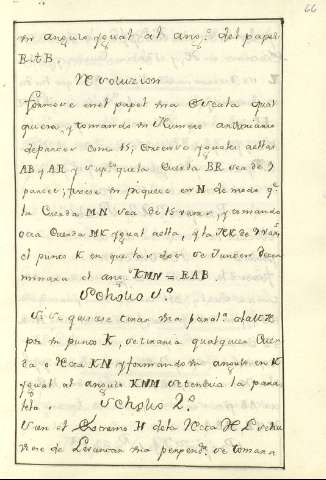 66
un angulo ygual al ang.º del papel
B.tB.
Resoluzion
formese en el papel una Escala qual
quiera, y tomando un Numero
de partes como 15,
AB y AR y supto. que la Cuerda BR sea de 9
partes; fixese un piquete en N de modo q.e
la Cuerda MN sea de 15 varas, y tomando
otra Cuerda MK ygual a ella, y la NK de 9 varas
el punto K en que las dos se junten deter
minara el ang.º KMN = RAB
Scholio 1.º
Si se quisiese tirar una paral.ª a la
por un punto K, se tirara qualquier Cuer
da o Recta KN y formando un angulo en K
ygual al angulo KNM se tendra la para
lela. Scholio 2.º
Si en el Extremo H de la Recta HL se hu
viese de Levantar una perpend.r se tomara